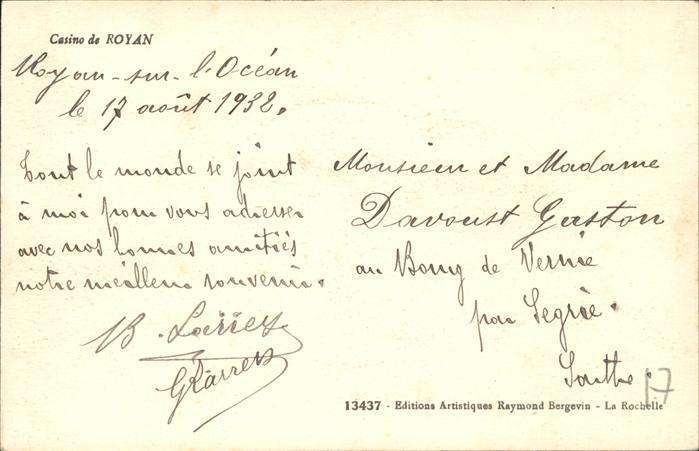 Casino de ROYAN
Royan-sur-l'Océan
le 17 août 1932.
Tout le monde se joint
à moi pour vous adresser
avec nos bonnes amitiés
notre meilleur souvenir.
Monsieur et Madame
Davoust Gaston
au Bourg de Vernie
par Segrie.
Sarthe.
17
13437 - Editions Artistiques Raymond Bergevin - La Rochelle